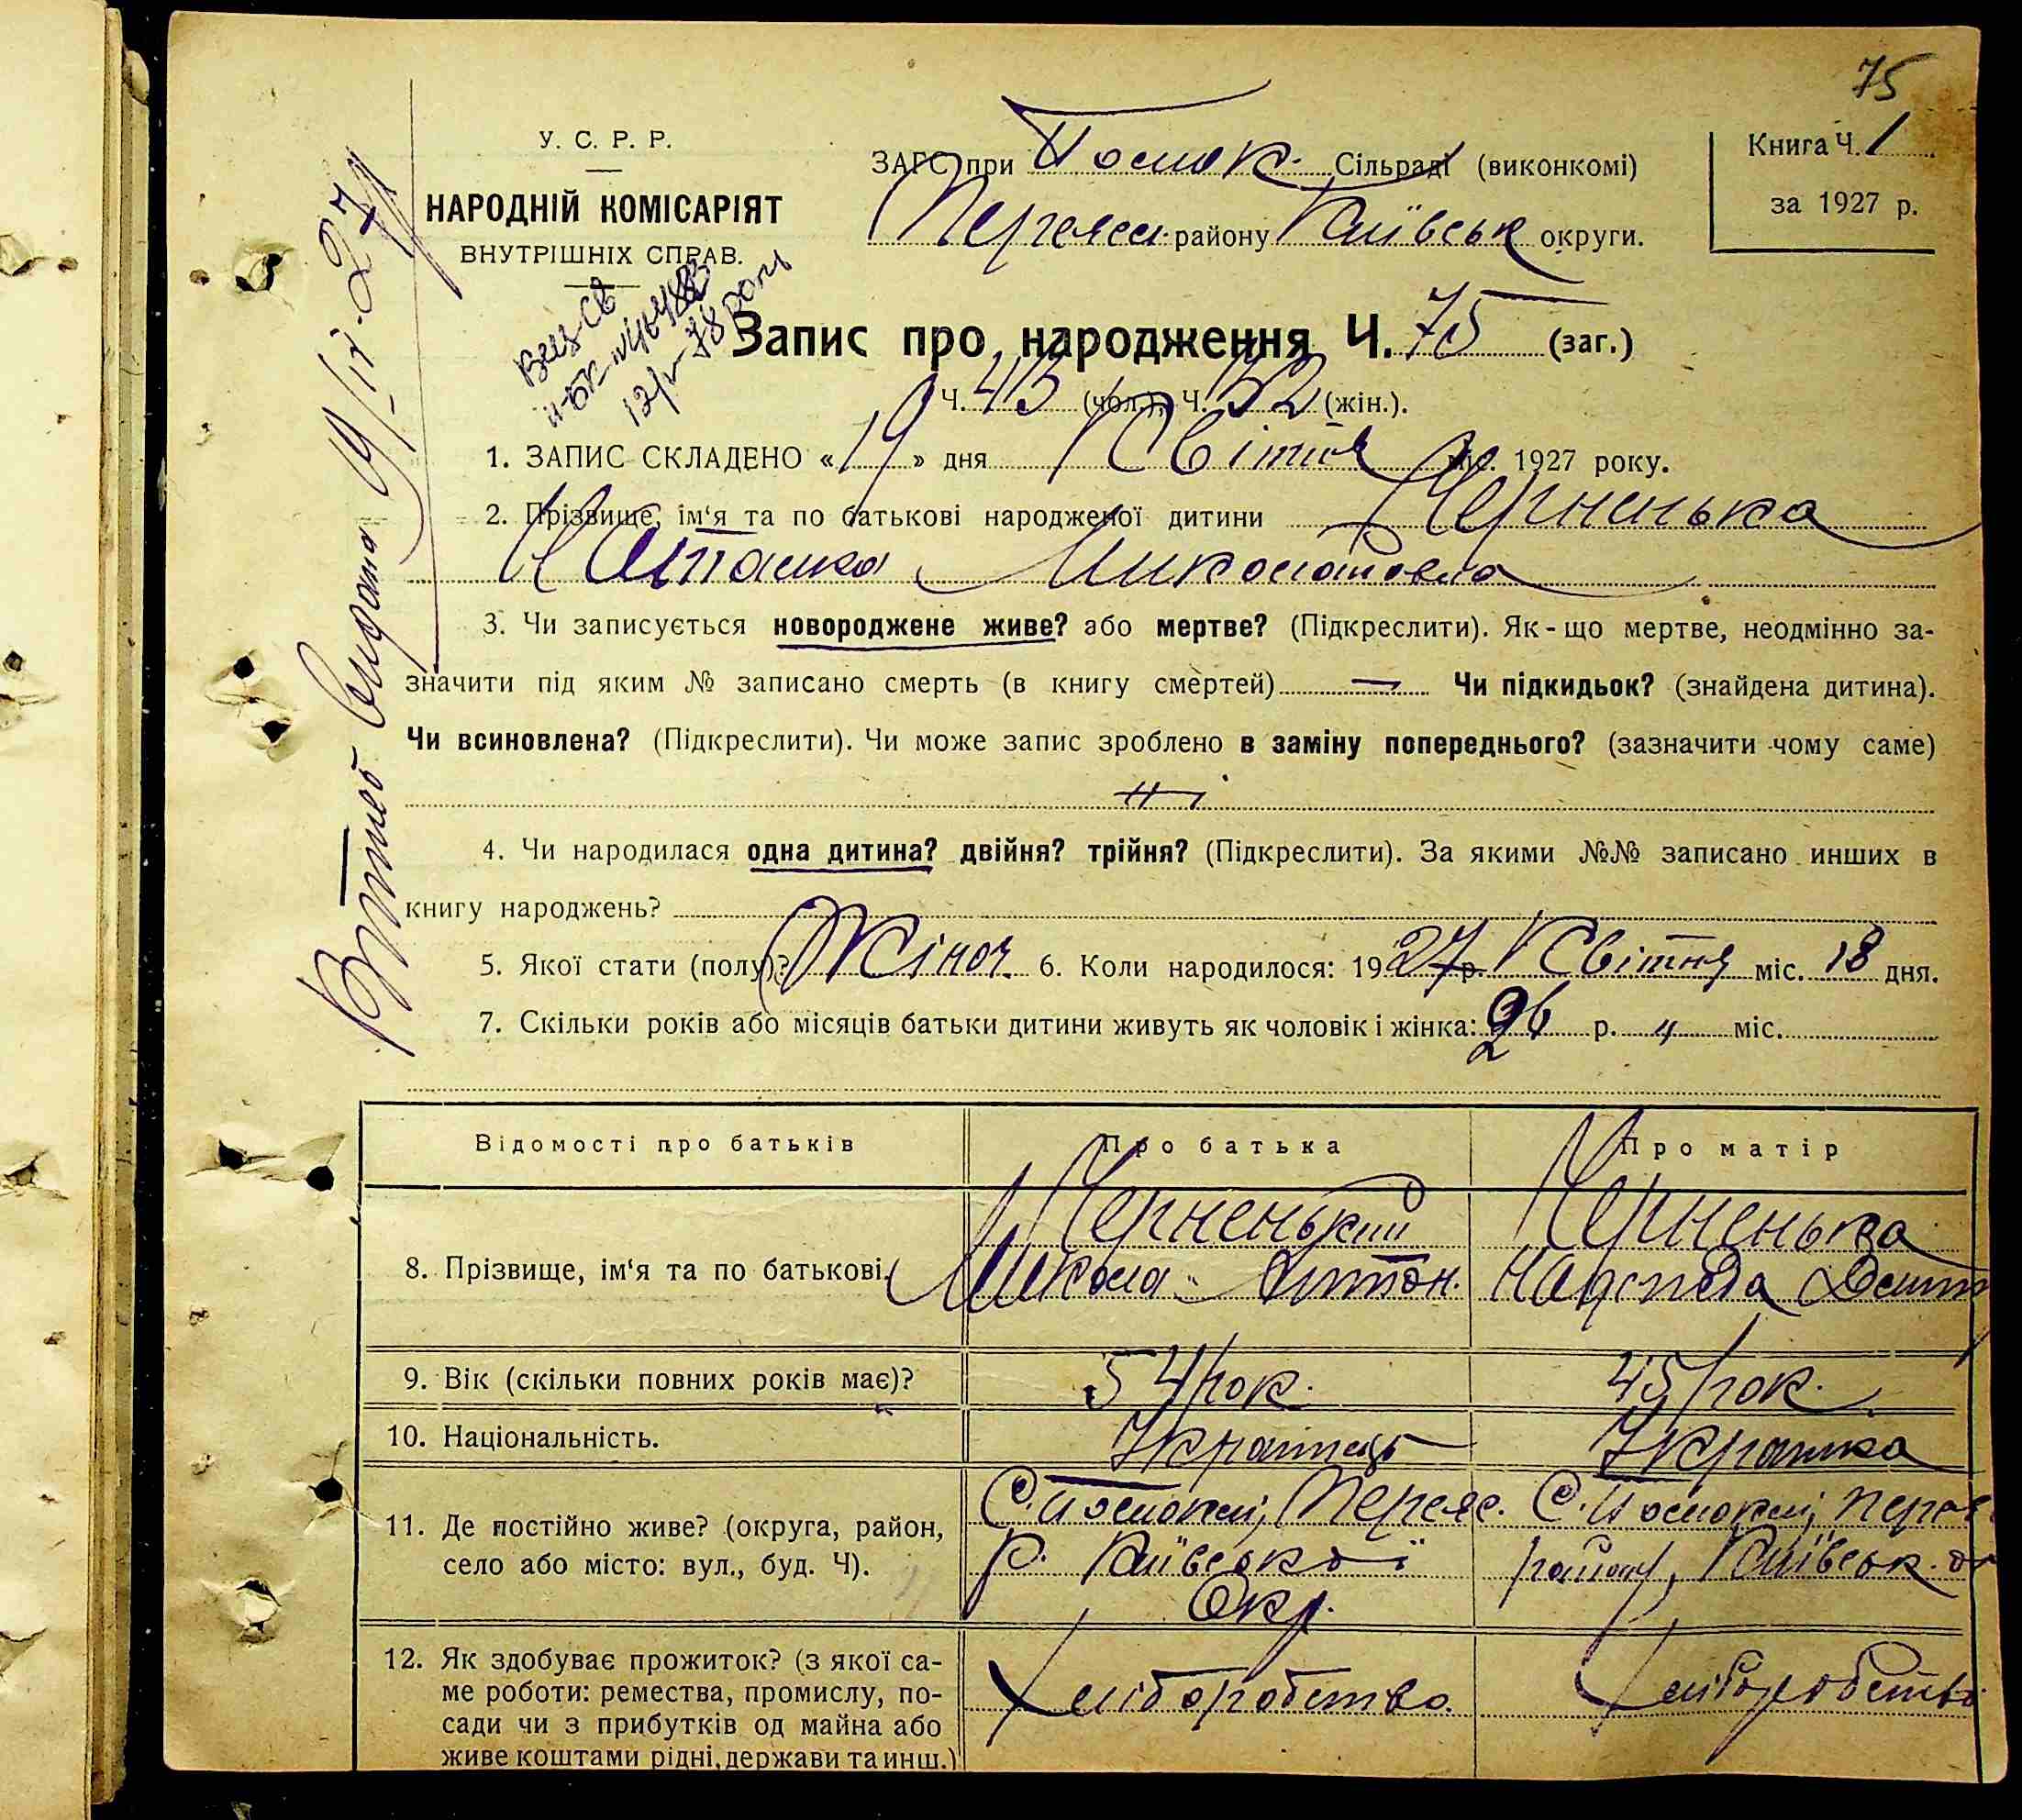 75
У. С. Р. Р.
НАРОДНІЙ КОМІСАРІЯТ
ВНУТРІШНІХ СПРАВ.
ЗАГС при Помок. Сільраді (виконкомі)
Переяс. району Київськ округи.
Книга Ч. 1
за 1927 р.
Запис про народження Ч. 75 (заг.)
Ч. 43 (чол.), Ч. 32 (жін.).
1. ЗАПИС СКЛАДЕНО «19» дня Квітня міс. 1927 року.
2. Прізвище, ім'я та по батькові народженої дитини Черненька
Наталка Миколаївна
3. Чи записується новороджене живе? або мертве? (Підкреслити). Як-що мертве, неодмінно за-
значити під яким № записано смерть (в книгу смертей) — Чи підкидьок? (знайдена дитина).
Чи всиновлена? (Підкреслити). Чи може запис зроблено в заміну попереднього? (зазначити чому саме)
4. Чи народилася одна дитина? двійня? трійня? (Підкреслити). За якими №№ записано инших в
книгу народжень?
5. Якої стати (полу)? Жіноч. 6. Коли народилося: 1927 р. Квітня міс. 18 дня.
7. Скільки років або місяців батьки дитини живуть як чоловік і жінка: 26 р. „ міс.
Відомості про батьків Про батька Про матір
8. Прізвище, ім'я та по батькові. Черненький Черненька
Микола Антон.
9. Вік (скільки повних років має)? 54 рок. 45 рок.
10. Національність. Українець Українка
11. Де постійно живе? (округа, район, Переяс.
село або місто: вул., буд. Ч). р. Київської району, Київськ.
Окр.
12. Як здобуває прожиток? (з якої са-
ме роботи: ремества, промислу, по- Хліборобство. Хліборобство.
сади чи з прибутків од майна або
живе коштами рідні, держави та инш.)
Витяг видано 19/IV-27